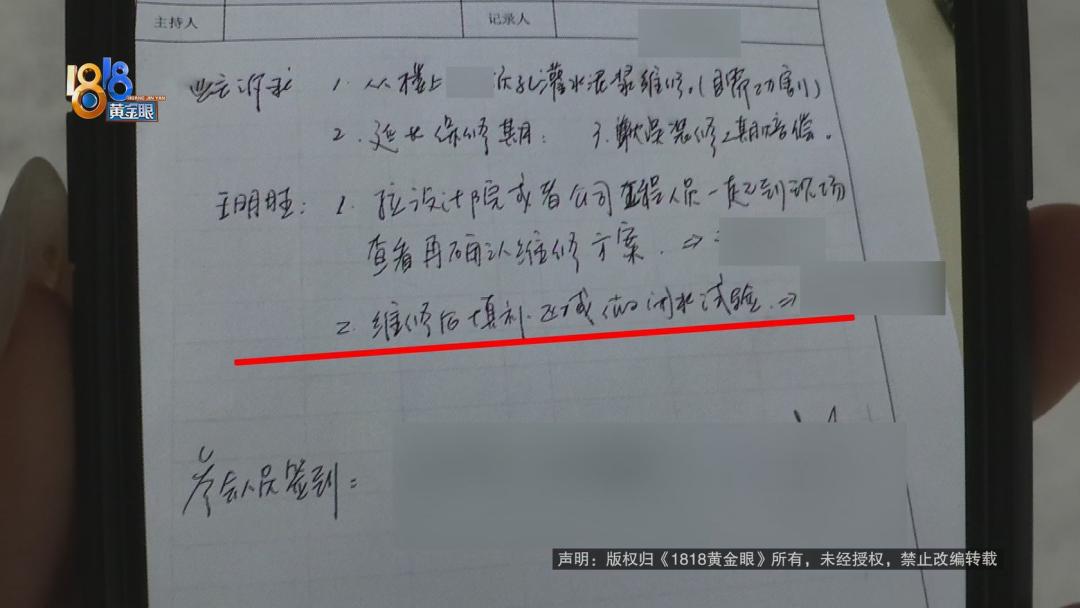 主持人 记录人
1818
HUANG JIN YAN
黄金眼
业主诉求 1. 从楼上 灌水泥浆维修。(自带切割)
2. 延长保修期: 3. 装修 期赔偿。
王明旺: 1. 设计院或者公司工程人员一起到现场
查看再确认维修方案. ⇒
2. 维修后填补区域做闭水试验. ⇒
参会人员签到:
声明:版权归《1818黄金眼》所有,未经授权,禁止改编转载